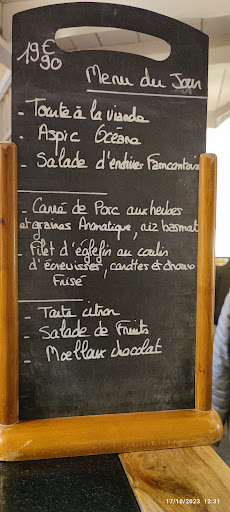 19€90
Menu du Jour
- Tourte à la viande
- Aspic Océane
- Salade d'endives Francomtoise
- Carré de Porc aux herbes
et graines Aromatique, riz basmati
- Filet d'églefin au coulis
d'écrevisses, carottes et choux
Frisé
- Tarte citron
- Salade de Fruits
- Moelleux chocolat
17/10/2023 12:31